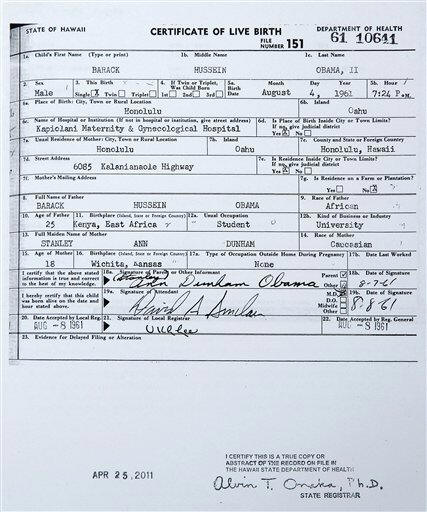 STATE OF HAWAII CERTIFICATE OF LIVE BIRTH DEPARTMENT OF HEALTH
FILE NUMBER 151 61 10641
1a. Child's First Name (Type or print) 1b. Middle Name 1c. Last Name
BARACK HUSSEIN OBAMA, II
2. Sex 3. This Birth 4. If Twin or Triplet, Was Child Born 5a. Birth Date Month Day Year 5b. Hour
Male Single Twin Triplet 1st 2nd 3rd August 4, 1961 7:24 P.M.
6a. Place of Birth: City, Town or Rural Location 6b. Island
Honolulu Oahu
6c. Name of Hospital or Institution (If not in hospital or institution, give street address) 6d. Is Place of Birth Inside City or Town Limits? If no, give judicial district
Kapiolani Maternity & Gynecological Hospital Yes No
7a. Usual Residence of Mother: City, Town or Rural Location 7b. Island 7c. County and State or Foreign Country
Honolulu Oahu Honolulu, Hawaii
7d. Street Address 7e. Is Residence Inside City or Town Limits? If no, give judicial district
6085 Kalanianaole Highway Yes No
7f. Mother's Mailing Address 7g. Is Residence on a Farm or Plantation?
Yes No
8. Full Name of Father 9. Race of Father
BARACK HUSSEIN OBAMA African
10. Age of Father 11. Birthplace (Island, State or Foreign Country) 12a. Usual Occupation 12b. Kind of Business or Industry
25 Kenya, East Africa Student University
13. Full Maiden Name of Mother 14. Race of Mother
STANLEY ANN DUNHAM Caucasian
15. Age of Mother 16. Birthplace (Island, State or Foreign Country) 17a. Type of Occupation Outside Home During Pregnancy 17b. Date Last Worked
18 Wichita, Kansas None
I certify that the above stated information is true and correct to the best of my knowledge. 18a. Signature of Parent or Other Informant Parent Other 18b. Date of Signature
(Stanley) Ann Dunham Obama 8-7-61
I hereby certify that this child was born alive on the date and hour stated above. 19a. Signature of Attendant M.D. D.O. Midwife Other 19b. Date of Signature
David A Sinclair 8-8-61
20. Date Accepted by Local Reg. 21. Signature of Local Registrar 22. Date Accepted by Reg. General
AUG -8 1961 UKLee AUG -8 1961
23. Evidence for Delayed Filing or Alteration
APR 25, 2011
I CERTIFY THIS IS A TRUE COPY OR
ABSTRACT OF THE RECORD ON FILE IN
THE HAWAII STATE DEPARTMENT OF HEALTH
Alvin T. Onaka, Ph.D.
STATE REGISTRAR